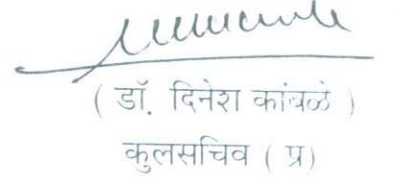 ( डॉ. दिनेश कांबळे )
कुलसचिव ( प्र)